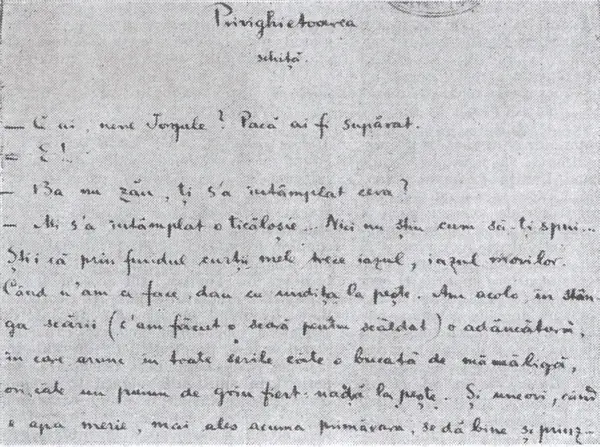 Privighetoarea
schiță.
— Ce ai, nene Iorgule? Parcă ai fi supărat.
— E!..
— Ba nu zău, ți s'a întâmplat ceva?
— Mi s'a întâmplat o ticăloșie... Nici nu știu cum să-ți spui...
Știi că prin fundul curții mele trece iazul, iazul morilor.
Când n'am ce face, dau cu undița la pește. Am acolo, în stân-
ga scării (c'am făcut o scară pentru scăldat) o adâncătură,
în care arunc în toate serile câte o bucată de mămăligă,
ori câte un pumn de grâu fiert: nadă la pește. Și uneori, când
e apa merie, mai ales acuma primăvara, se dă bine și prinz...